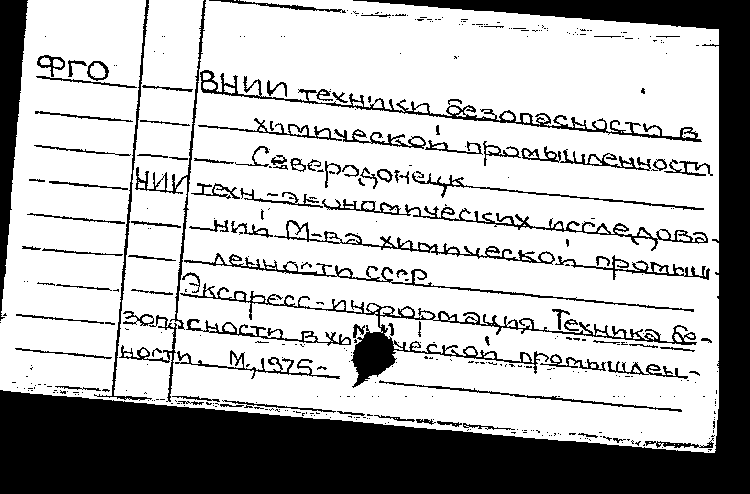 ФГО
ВНИИ техники безопасности в
химической промышленности
Северодонецк
НИИ техн.-экономических исследова-
ний М-ва химической промыш-
ленности СССР.
Экспресс-информация. Техника бе-
зопасности в химической промышлен-
ности. М., 1975-